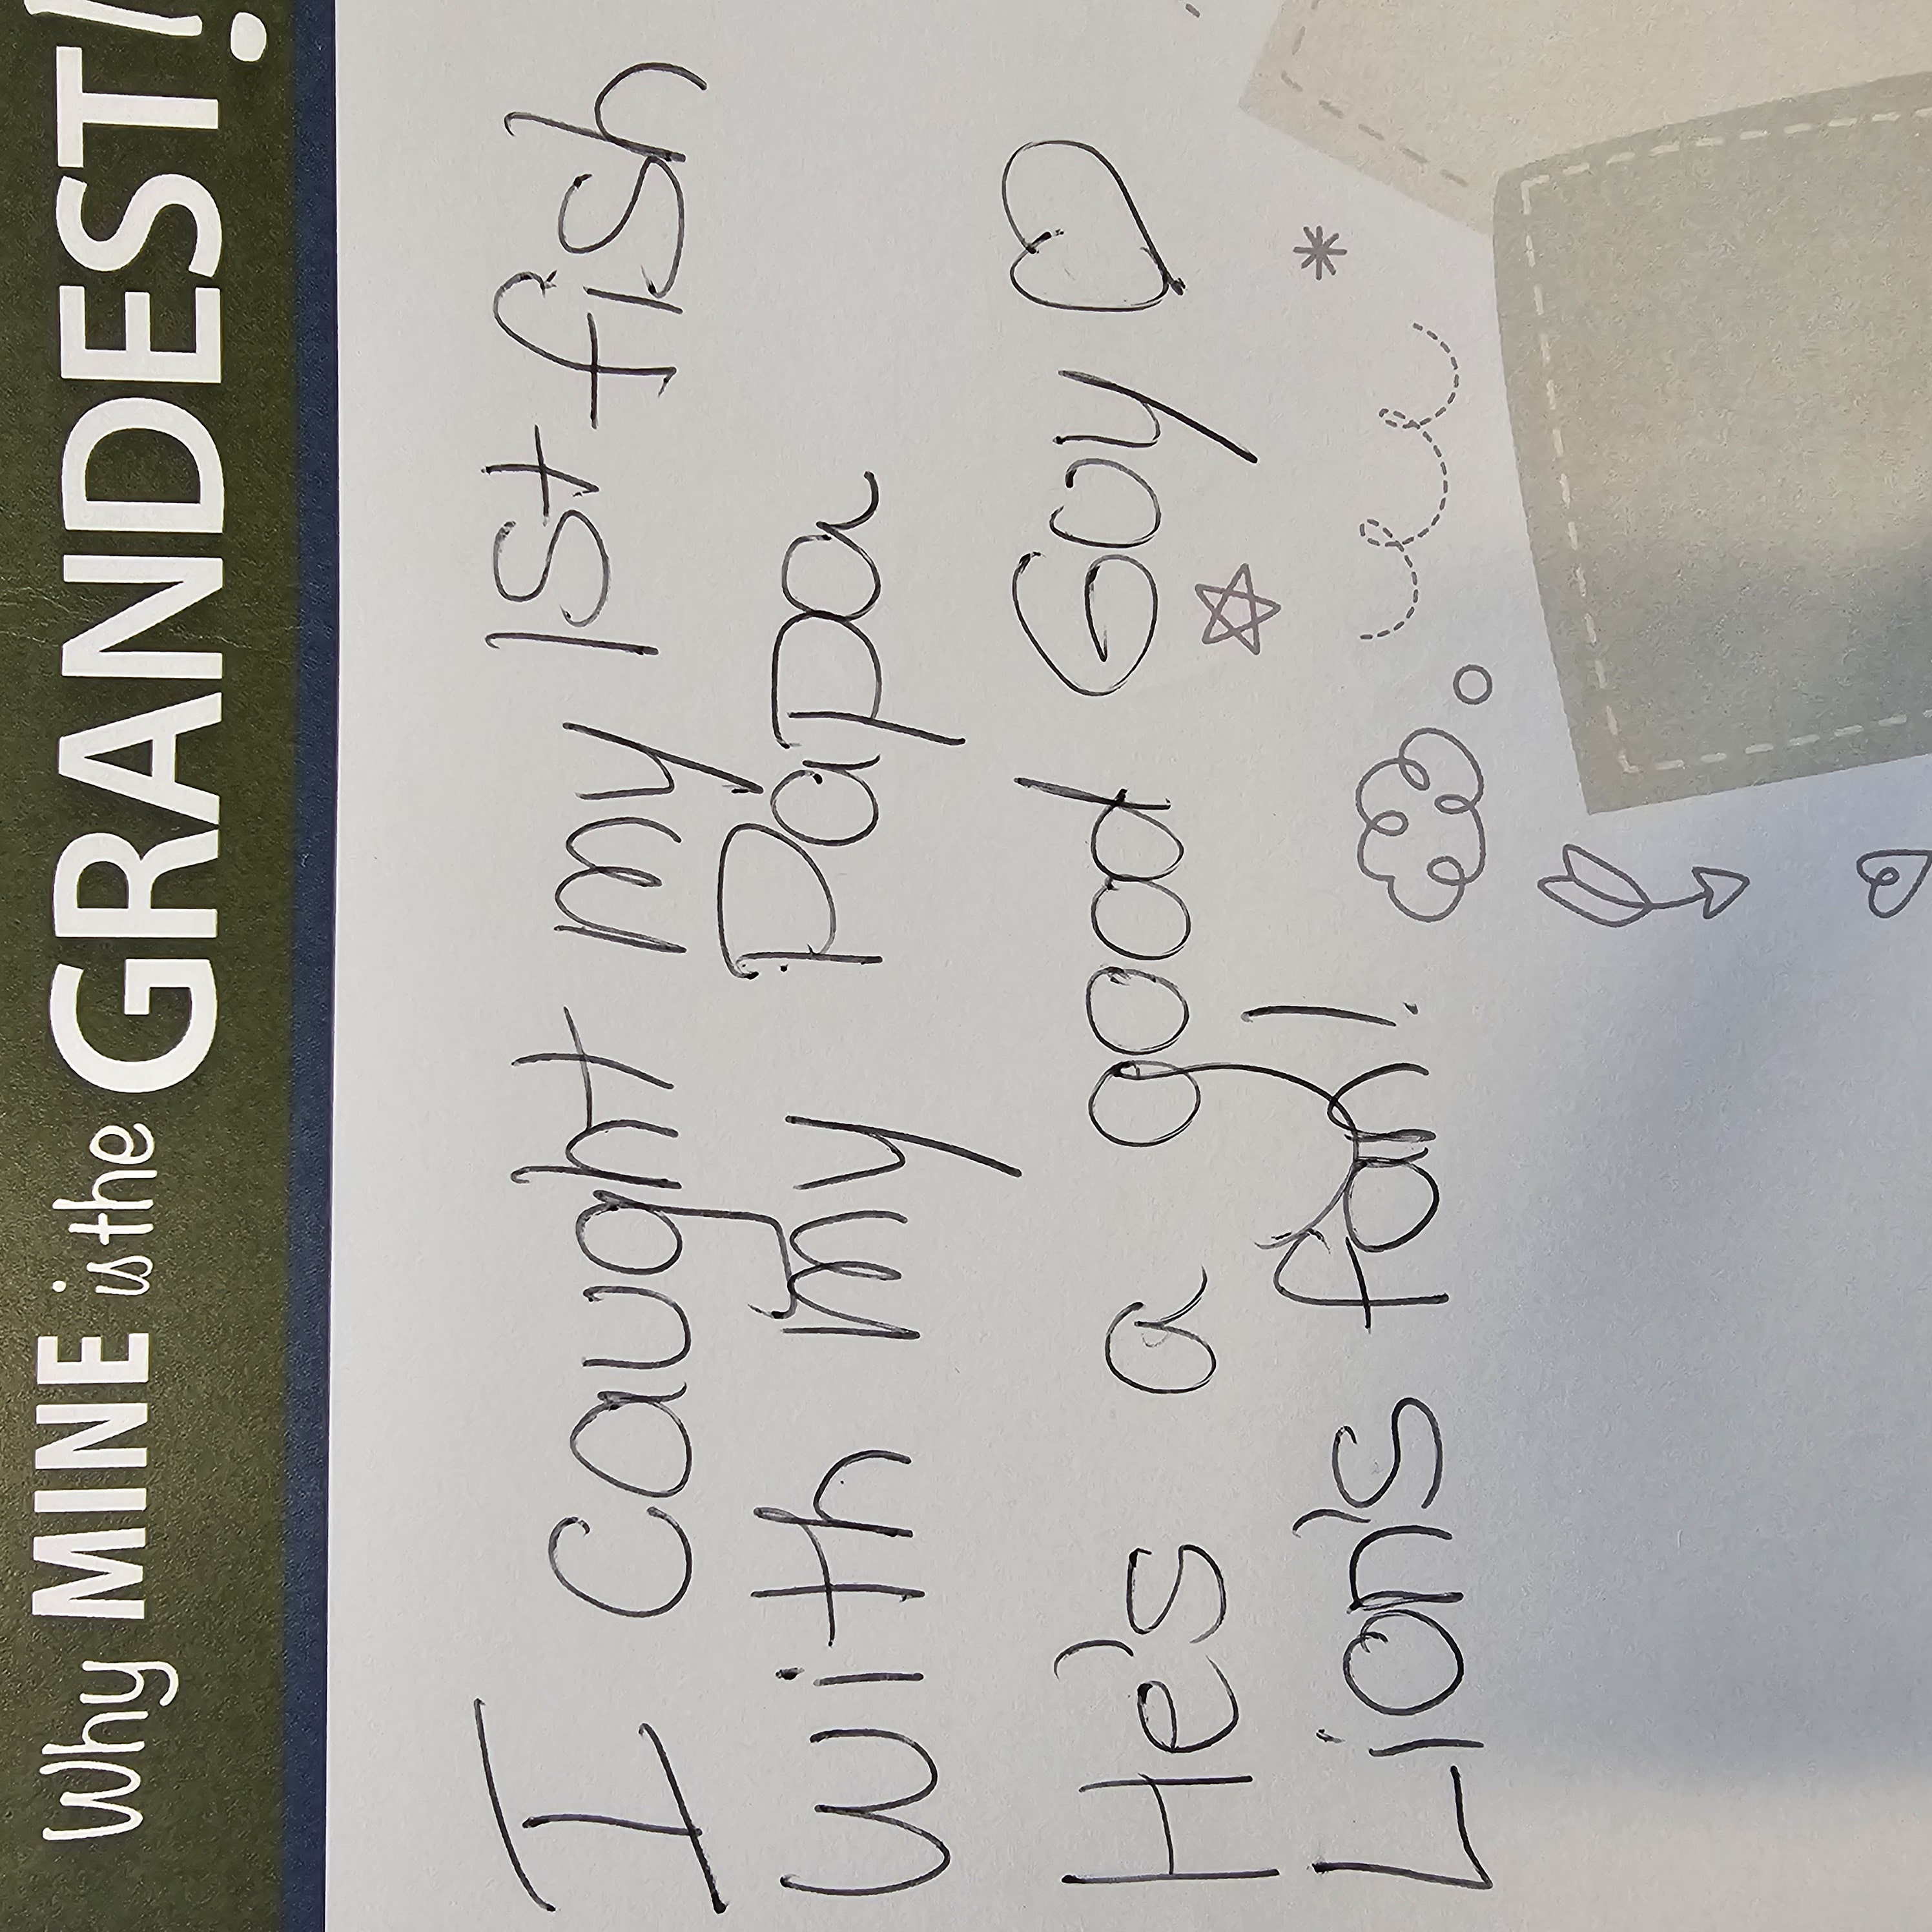 Why MINE is the GRANDEST!
I caught my 1st fish
with my Papa
He's a good Guy ♡
Lion's fan!